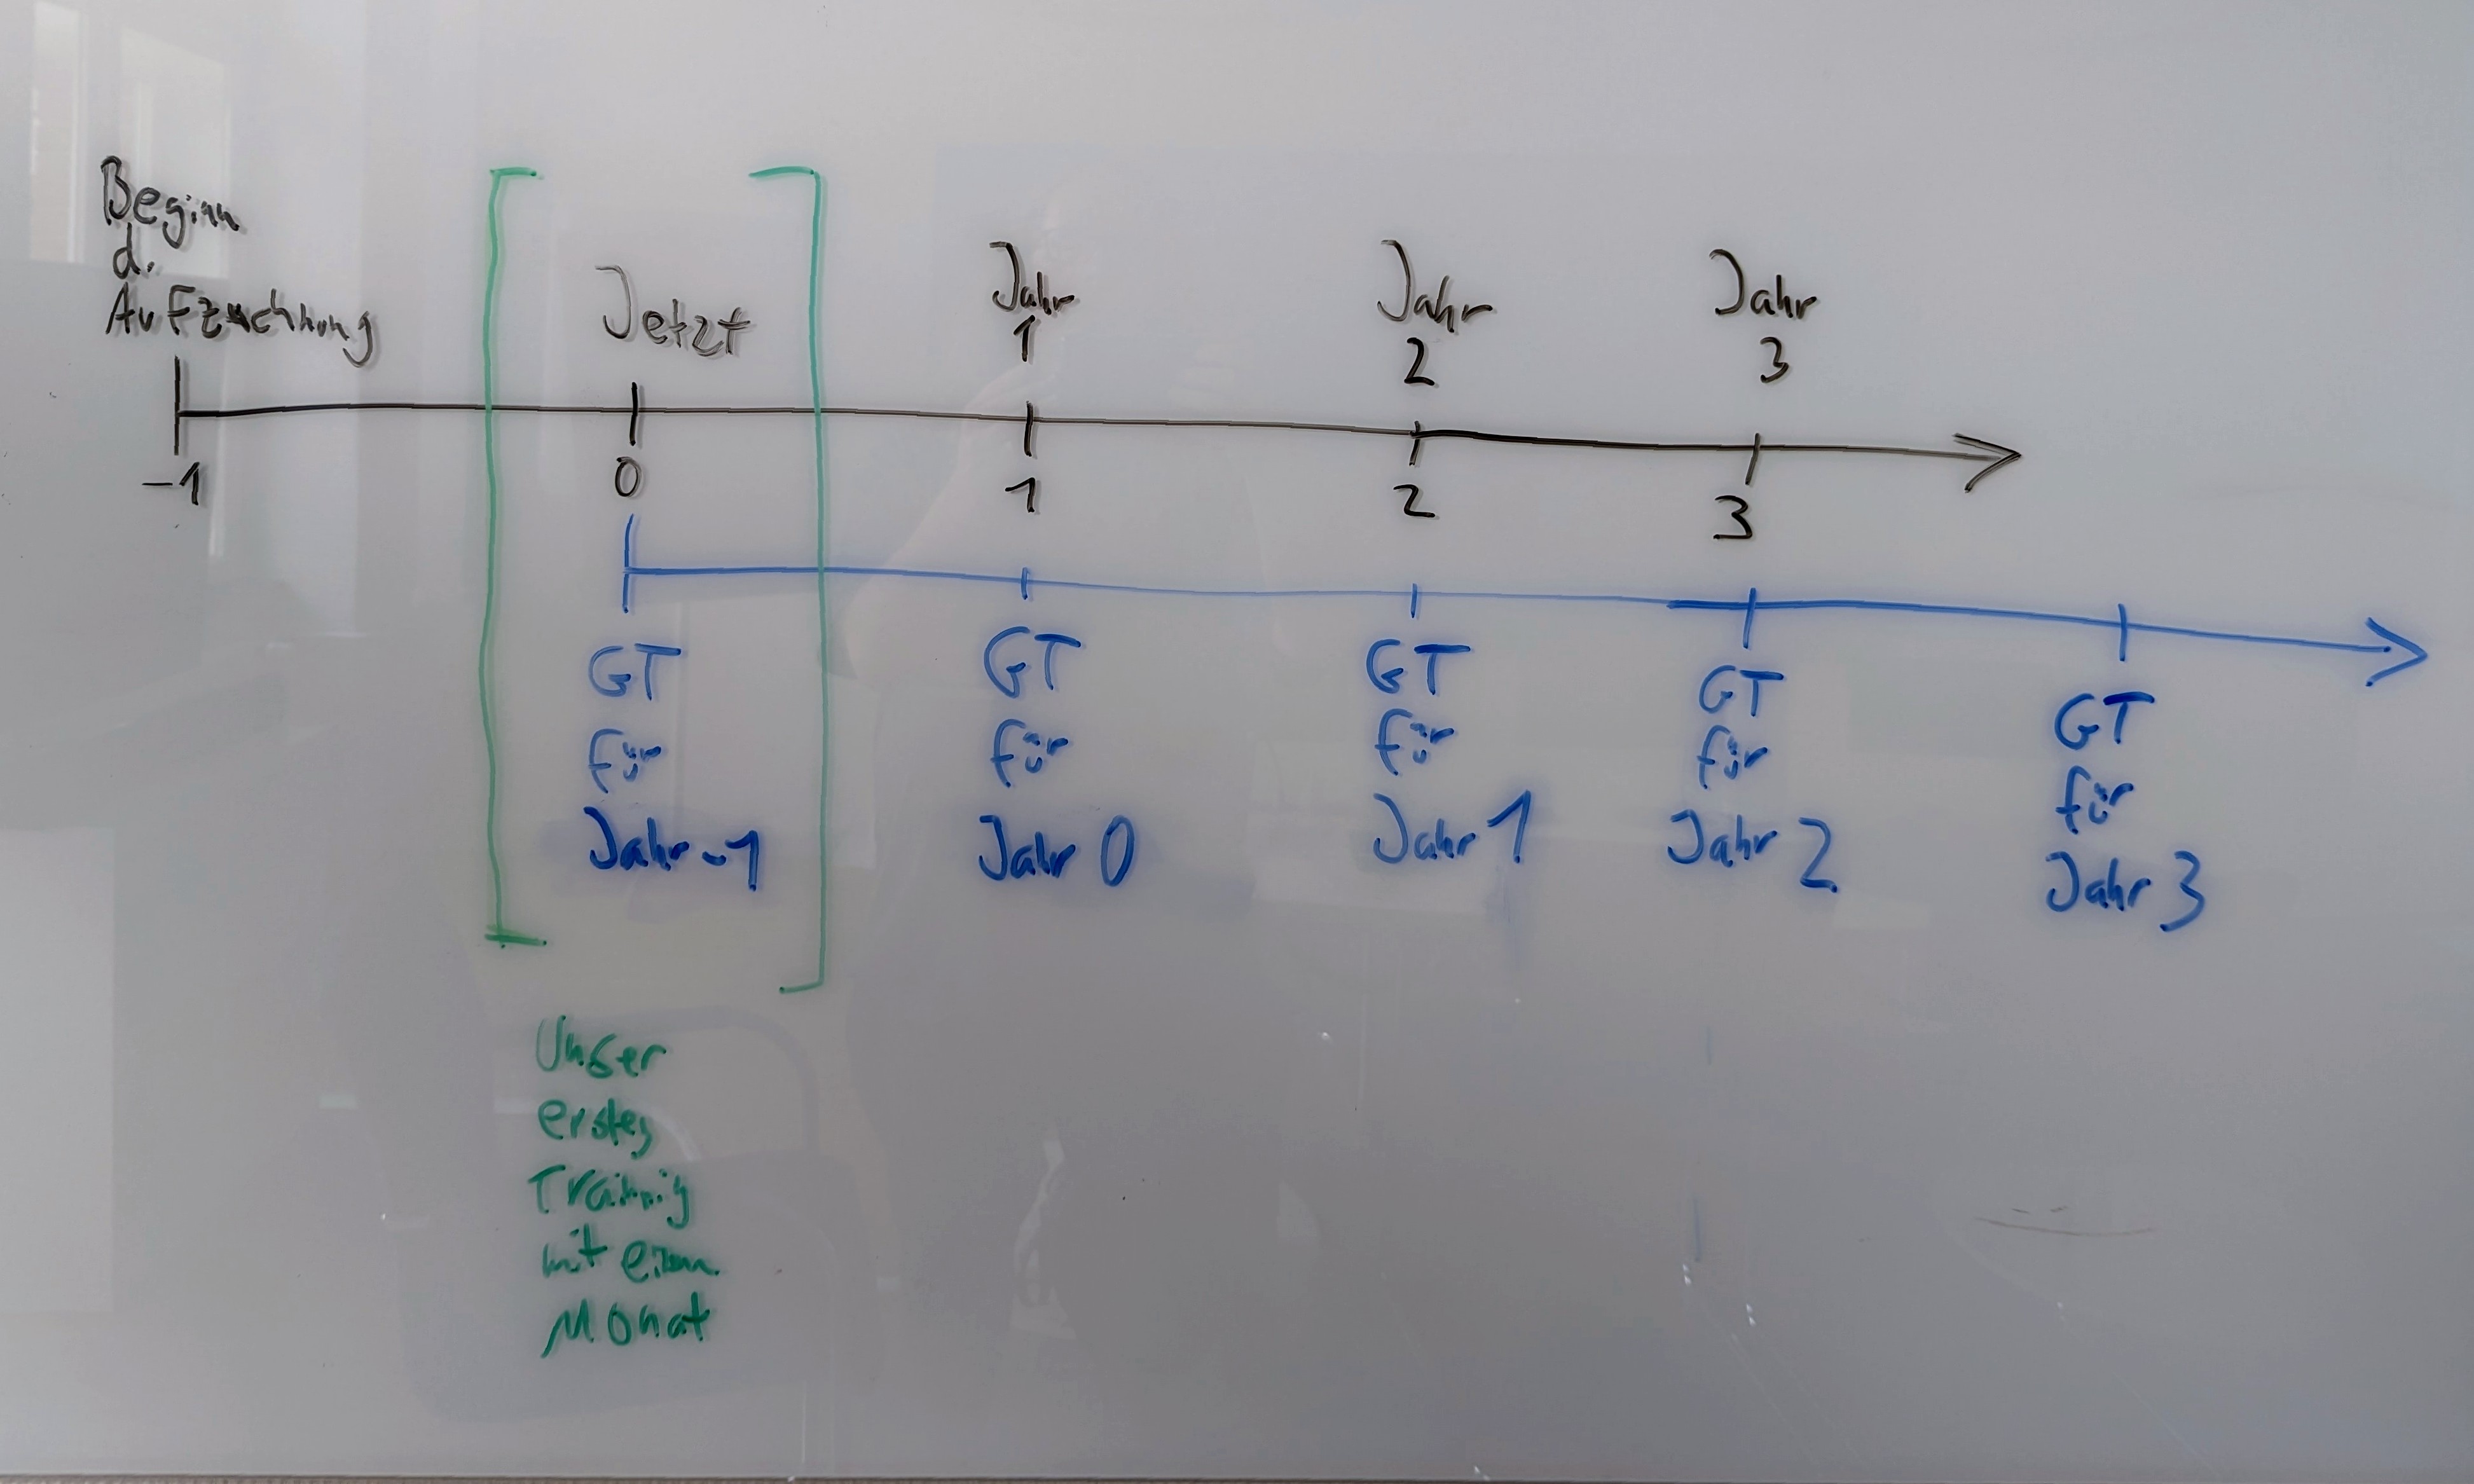 Beginn
d.
Aufzeichnung
Jetzt
Jahr
1
Jahr
2
Jahr
3
-1
0
1
2
3
GT
für
Jahr -1
GT
für
Jahr 0
GT
für
Jahr 1
GT
für
Jahr 2
GT
für
Jahr 3
Unser
erstes
Training
mit einem
Monat